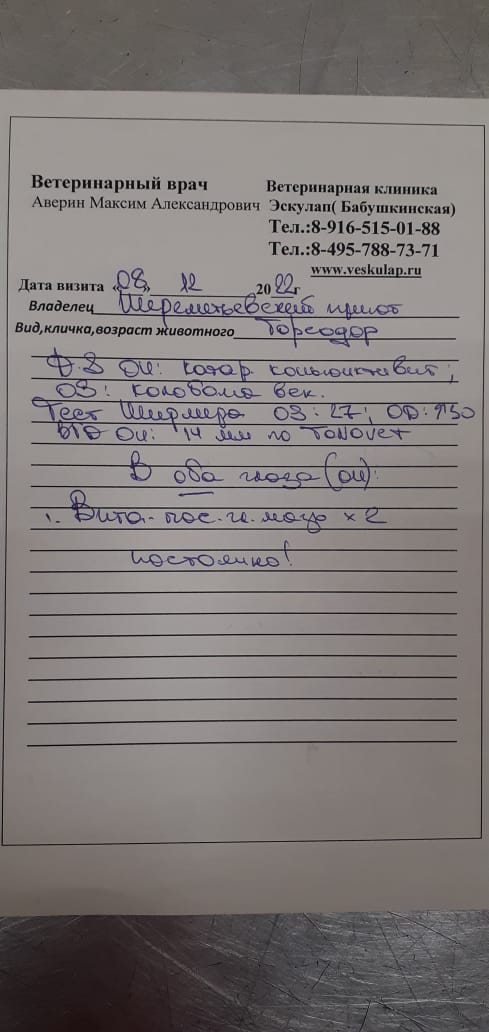 Ветеринарный врач
Аверин Максим Александрович
Ветеринарная клиника
Эскулап( Бабушкинская)
Тел.:8-916-515-01-88
Тел.:8-495-788-73-71
www.veskulap.ru
Дата визита «08» 12 2022г
Владелец Шереметьевский приют
Вид,кличка,возраст животного Тореодор
D.S OU: катар. конъюнктивит;
OS: колобома век.
Тест Ширмера OS: 27; OD:
ВГД OU: 14 мм по TonoVet
В оба глаза (OU):
1. Вита-пос. гл. мазь × 2
постоянно!